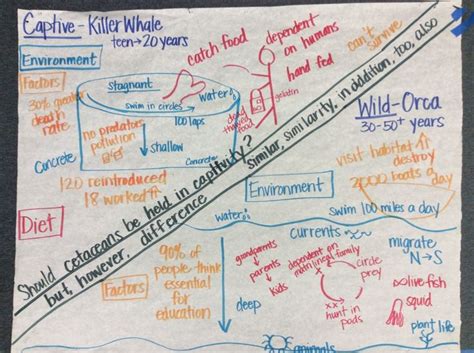 Captive - Killer Whale
teen → 20 years
Environment
Factors
30% greater
death
rate
Stagnant
water
swim in circles
100 laps
no predators
pollution
shallow
Concrete
Concrete
120 reintroduced
18 worked
Diet
catch food
dependent
on humans
hand fed
gelatin
dead
thawed
food
can't
survive
Should cetaceans be held in captivity?
Similar, similarity, in addition, too, also
but, however, difference
Wild-Orca
30-50+ years
Environment
visit habitat
destroy
2000 boats a day
water
swim 100 miles a day
Factors
90% of
people think
essential
for
education
currents
grandparents
parents
kids
deep
dependent on
matrilineal family
circle
prey
hunt in
pods
migrate
N → S
live fish
squid
plant life
animals